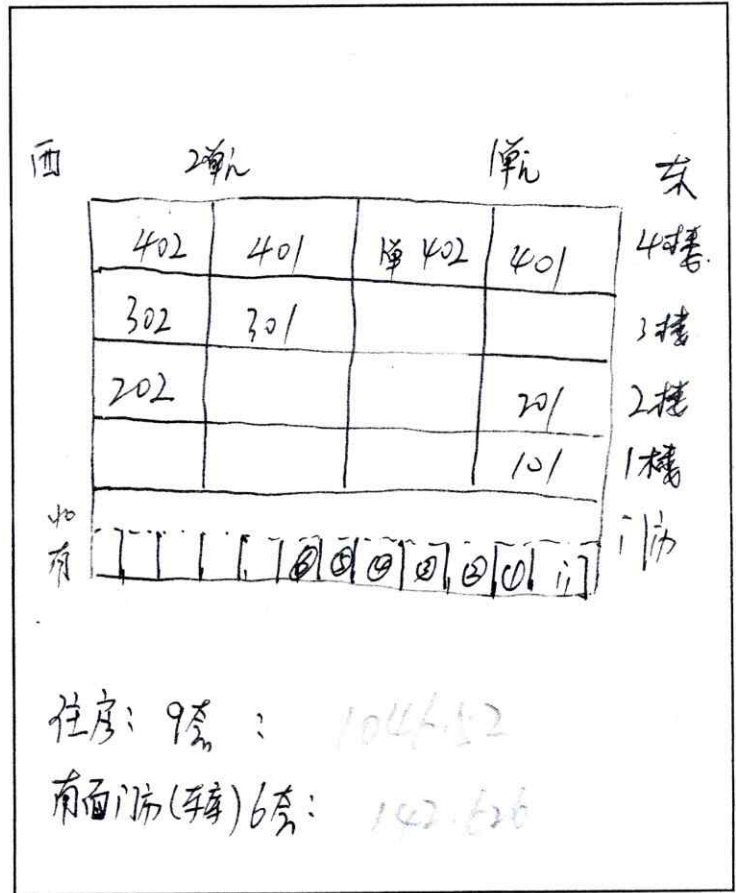 西 2单元 1单元 东
402 401 1单 402 401 4楼
302 301 3楼
202 201 2楼
101 1楼
门市
南 ⑥ ⑤ ④ ③ ② ① 门
住房: 9套 : 1046.52
南面门市(车库)6套: 142.626